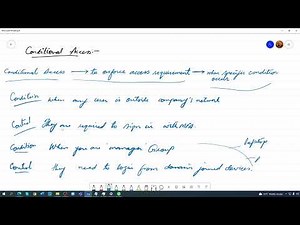 Conditional Access:-
Conditional Access → to enforce access requirement → when specific condition occurs
Condition when any user is outside company's network
Control They are required to sign in with MFA.
Condition When you are manager Group
Control they need to login from domain joined devices.
Laptop